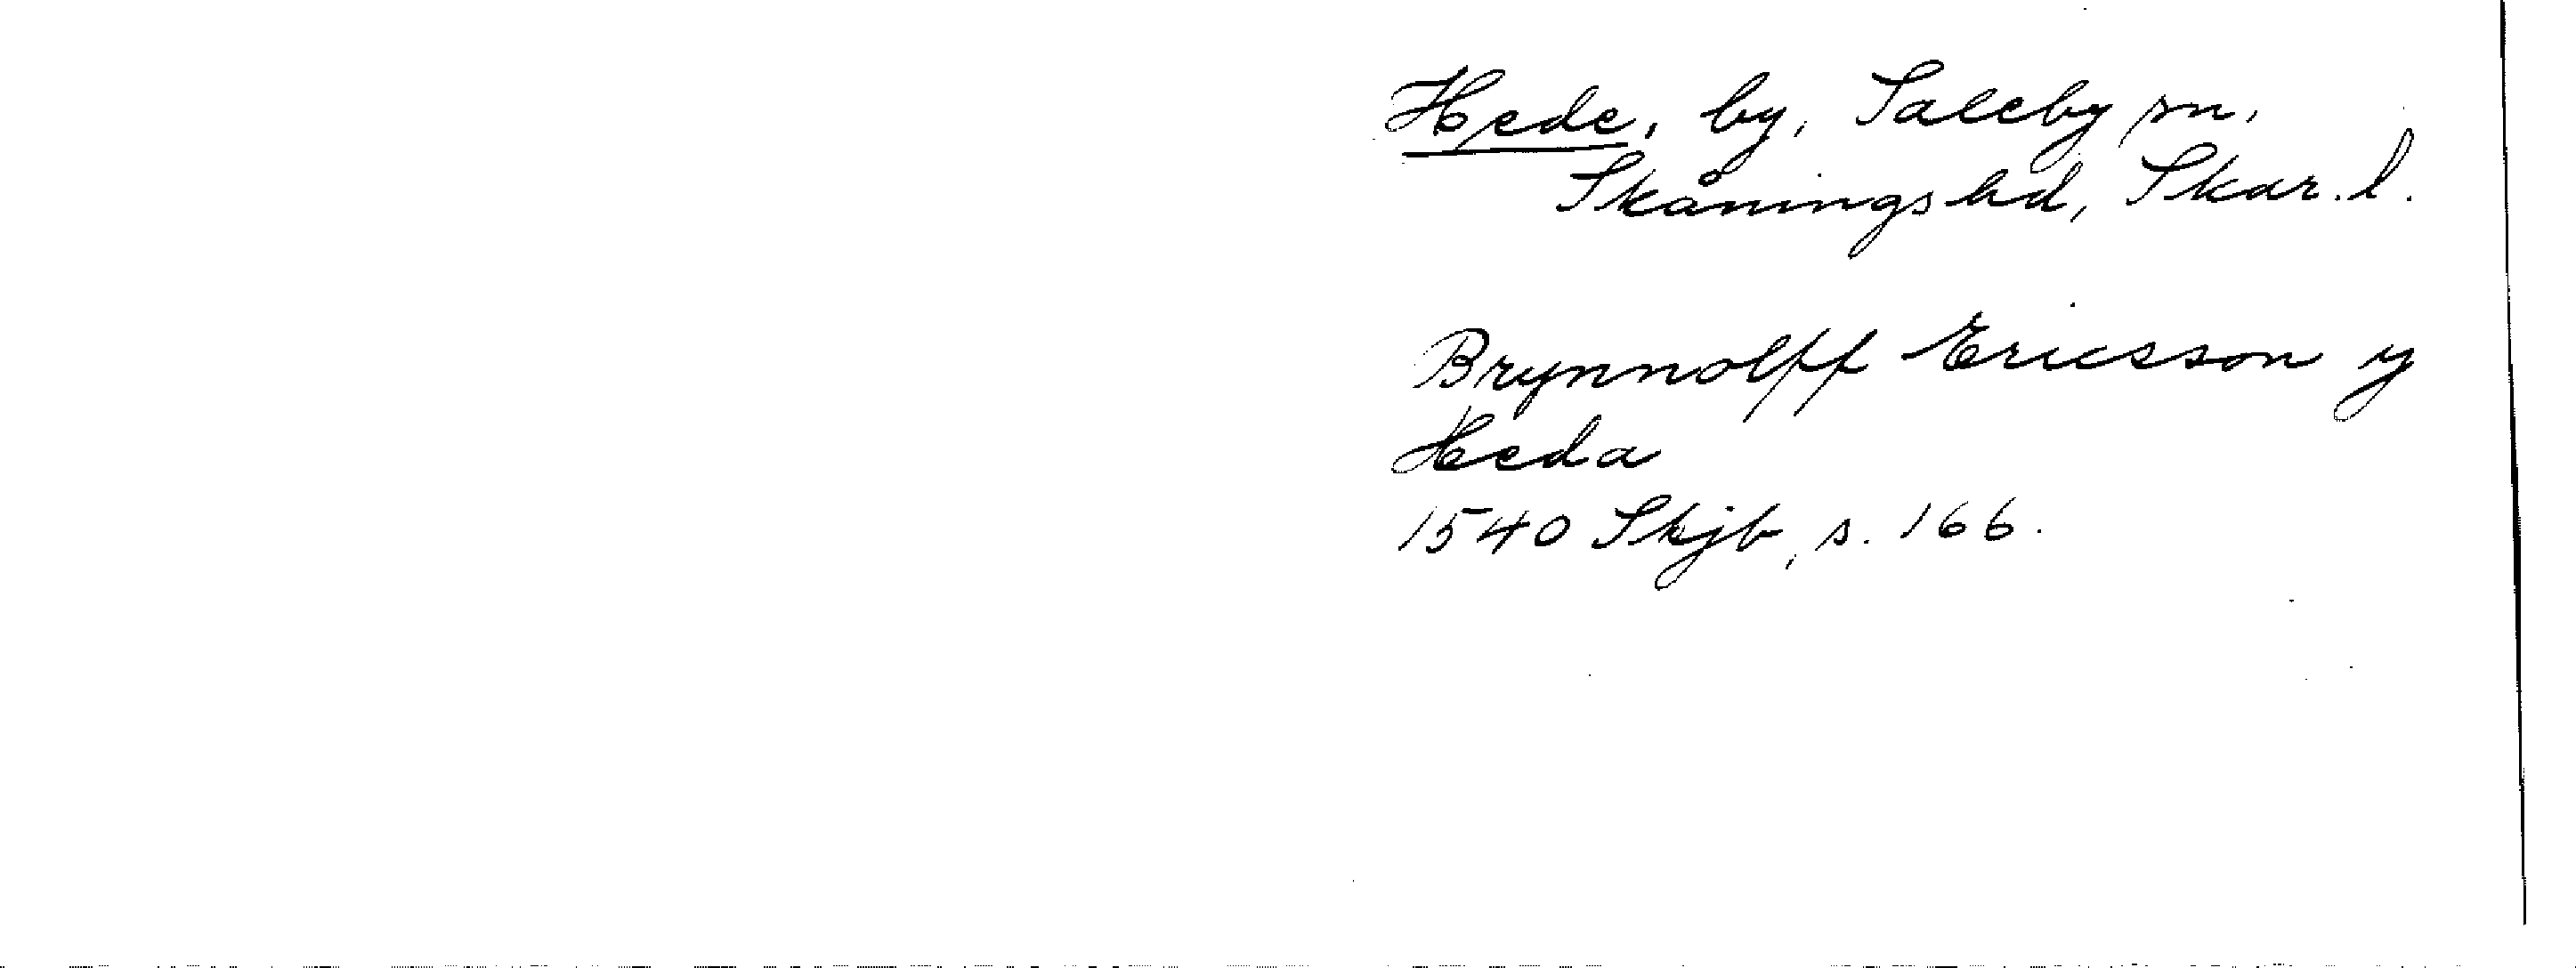 Hede, by, Saleby sn,
Skånings hd, Skar. l.
Brynnolff Ericsson y
Heda
1540 Skjb, s. 166.